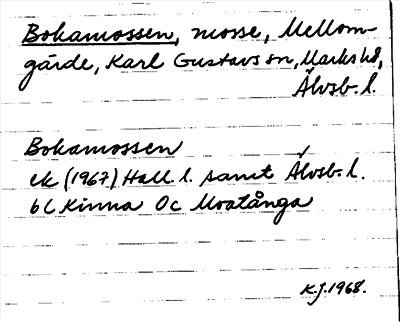 Bokamossen, mosse, Mellom-
gärde, Karl Gustavs sn, Marks hd,
Älvsb. l.
Bokamossen
ek (1967) Hall. l. samt Älvsb. l.
6C Kinna 0c Moatånga
K.J. 1968.